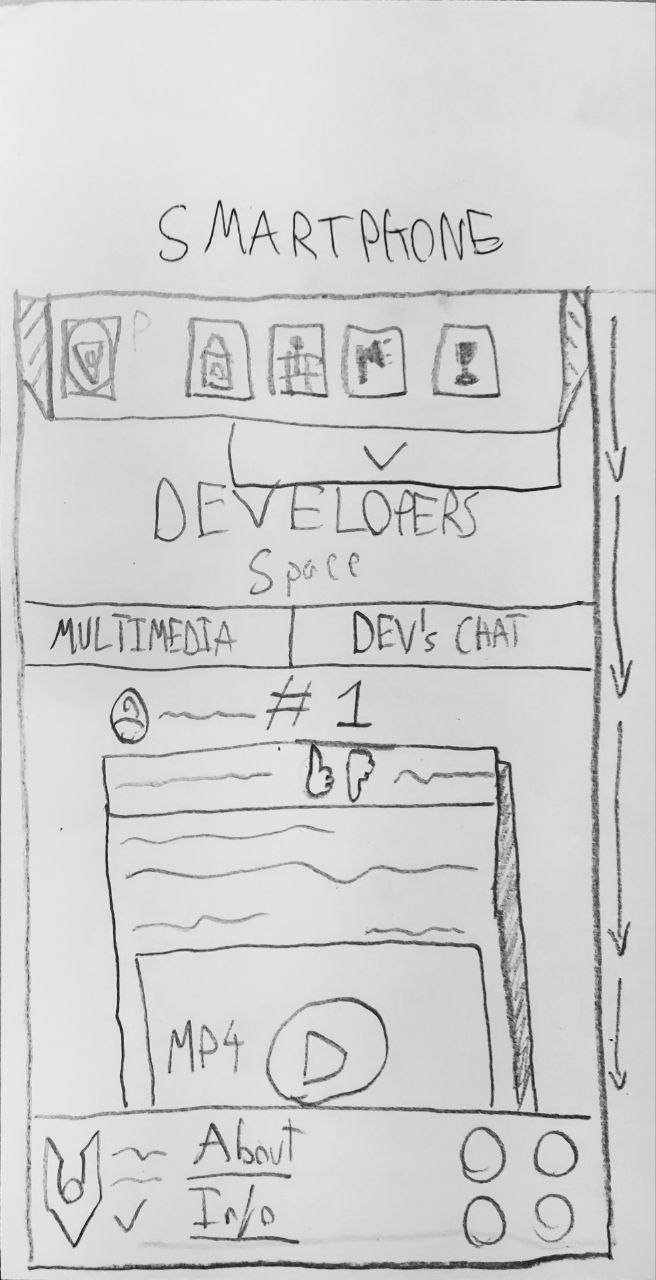 SMARTPHONE
P
DEVELOPERS
Space
MULTIMEDIA
DEV's CHAT
# 1
MP4
About
Info